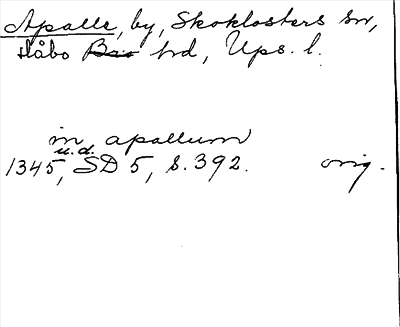 Apalle, by, Skoklosters sn,
Håbo hd, Ups. l.
in apallum
u.d.
1345, SD 5, s. 392. orig.